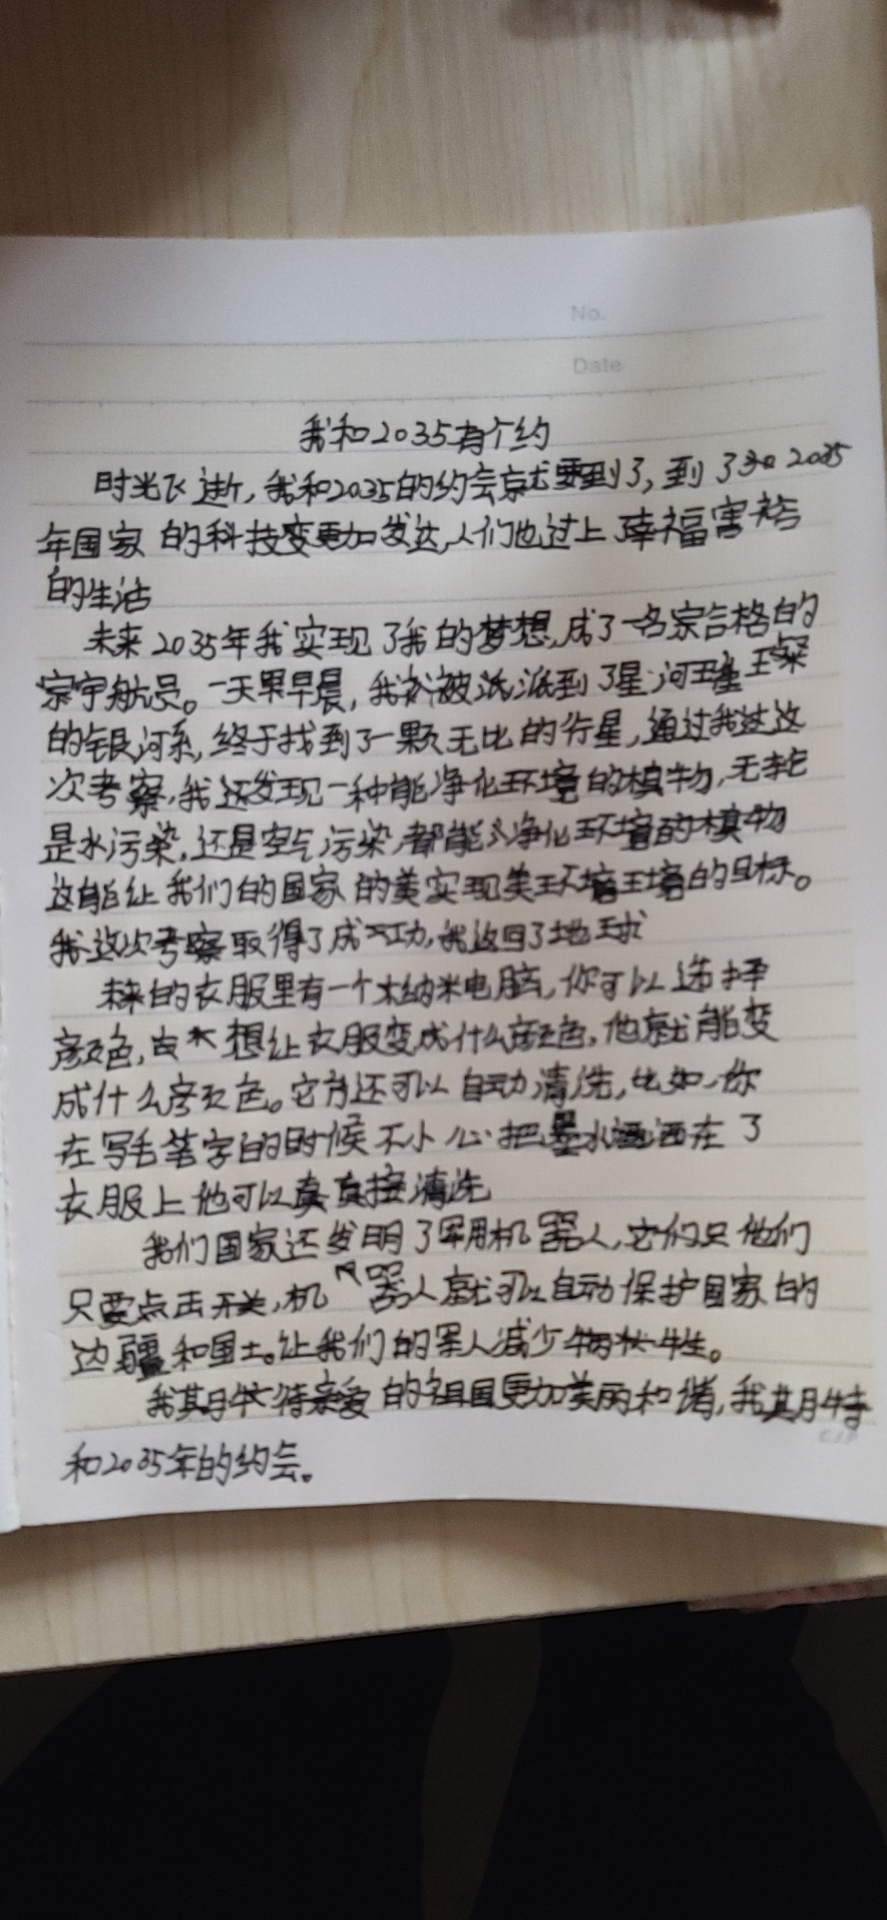 No.
Date
我和2035有个约
时光飞逝,我和2035的约会就要到了,到了 2035
年国家的科技变更加发达,人们也过上幸福富裕
的生活
未来2035年我实现了我的梦想,成了一名合格的
宇航员。一天早晨,我被派到了星河
的银河系,终于找到了一颗无比的行星,通过我这
次考察,我还发现一种能净化环境的植物,无论
是水污染,还是空气污染,都能净化环境的植物
这能让我们的国家的美实现美环境的目标。
我这次考察取得了成功,我返回了地球
未来的衣服里有一个纳米电脑,你可以选择
颜色,想让衣服变成什么颜色,他就能变
成什么颜色。它还可以自动清洗,比如,你
在写毛笔字的时候不小心把墨水洒在了
衣服上他可以直接清洗
我们国家还发明了军用机器人,它们只他们
只要点击开关,机器人就可以自动保护国家的
边疆和国土。让我们的军人减少牺牲。
我期待亲爱的祖国更加美丽和谐,我期待
和2035年的约会。